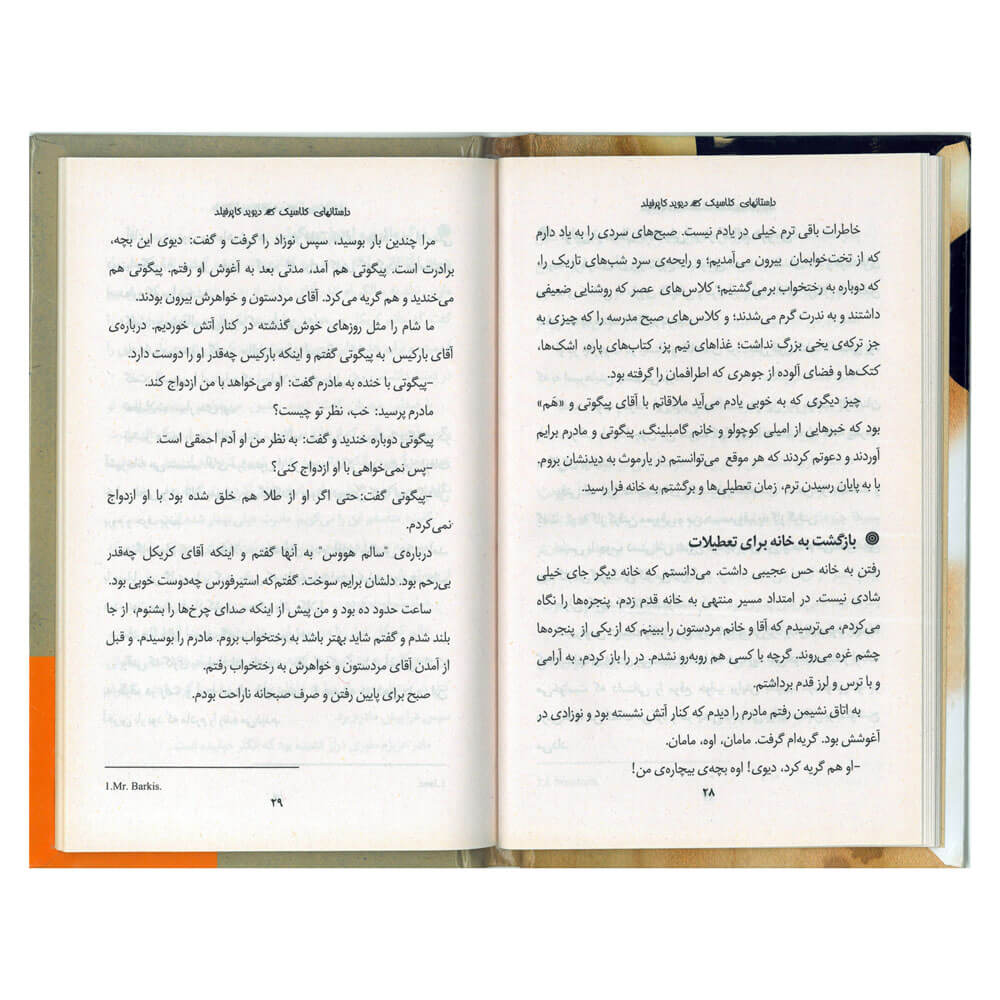 داستانهای کلاسیک دیوید کاپرفیلد
خاطرات باقی ترم خیلی در یادم نیست. صبح‌های سردی را به یاد دارم
که از تخت‌خوابمان بیرون می‌آمدیم؛ و رایحه‌ی سرد شب‌های تاریک را،
که دوباره به رختخواب برمی‌گشتیم؛ کلاس‌های عصر که روشنایی ضعیفی
داشتند و به ندرت گرم می‌شدند؛ و کلاس‌های صبح مدرسه را که چیزی به
جز ترکه‌ی یخی بزرگ نداشت؛ غذاهای نیم پز، کتاب‌های پاره، اشک‌ها،
کتک‌ها و فضای آلوده از جوهری که اطرافمان را گرفته بود.
چیز دیگری که به خوبی یادم می‌آید ملاقاتم با آقای پیگوتی و «هَم»
بود که خبرهایی از امیلی کوچولو و خانم گامبلینگ، پیگوتی و مادرم برایم
آوردند و دعوتم کردند که هر موقع می‌توانستم در یارموث به دیدنشان بروم.
با به پایان رسیدن ترم، زمان تعطیلی‌ها و برگشتم به خانه فرا رسید.
بازگشت به خانه برای تعطیلات
رفتن به خانه حس عجیبی داشت. می‌دانستم که خانه دیگر جای خیلی
شادی نیست. در امتداد مسیر منتهی به خانه قدم زدم، پنجره‌ها را نگاه
می‌کردم، می‌ترسیدم که آقا و خانم مردستون را ببینم که از یکی از پنجره‌ها
چشم غره می‌روند. گرچه با کسی هم روبه‌رو نشدم. در را باز کردم، به آرامی
و با ترس و لرز قدم برداشتم.
به اتاق نشیمن رفتم مادرم را دیدم که کنار آتش نشسته بود و نوزادی در
آغوشش بود. گریه‌ام گرفت. مامان، اوه، مامان.
-او هم گریه کرد، دیوی! اوه بچه‌ی بیچاره‌ی من!
۲۸
داستانهای کلاسیک دیوید کاپرفیلد
مرا چندین بار بوسید، سپس نوزاد را گرفت و گفت: دیوی این بچه،
برادرت است. پیگوتی هم آمد، مدتی بعد به آغوش او رفتم. پیگوتی هم
می‌خندید و هم گریه می‌کرد. آقای مردستون و خواهرش بیرون بودند.
ما شام را مثل روزهای خوش گذشته در کنار آتش خوردیم. درباره‌ی
آقای بارکیس¹ به پیگوتی گفتم و اینکه بارکیس چه‌قدر او را دوست دارد.
-پیگوتی با خنده به مادرم گفت: او می‌خواهد با من ازدواج کند.
مادرم پرسید: خب، نظر تو چیست؟
پیگوتی دوباره خندید و گفت: به نظر من او آدم احمقی است.
-پس نمی‌خواهی با او ازدواج کنی؟
-پیگوتی گفت:حتی اگر او از طلا هم خلق شده بود با او ازدواج
نمی‌کردم.
درباره‌ی "سالم هووس" به آنها گفتم و اینکه آقای کریکل چه‌قدر
بی‌رحم بود. دلشان برایم سوخت. گفتم‌که استیرفورس چه‌دوست خوبی بود.
ساعت حدود ده بود و من پیش از اینکه صدای چرخ‌ها را بشنوم، از جا
بلند شدم و گفتم شاید بهتر باشد به رختخواب بروم. مادرم را بوسیدم. و قبل
از آمدن آقای مردستون و خواهرش به رختخواب رفتم.
صبح برای پایین رفتن و صرف صبحانه ناراحت بودم.
1.Mr. Barkis.
۲۹